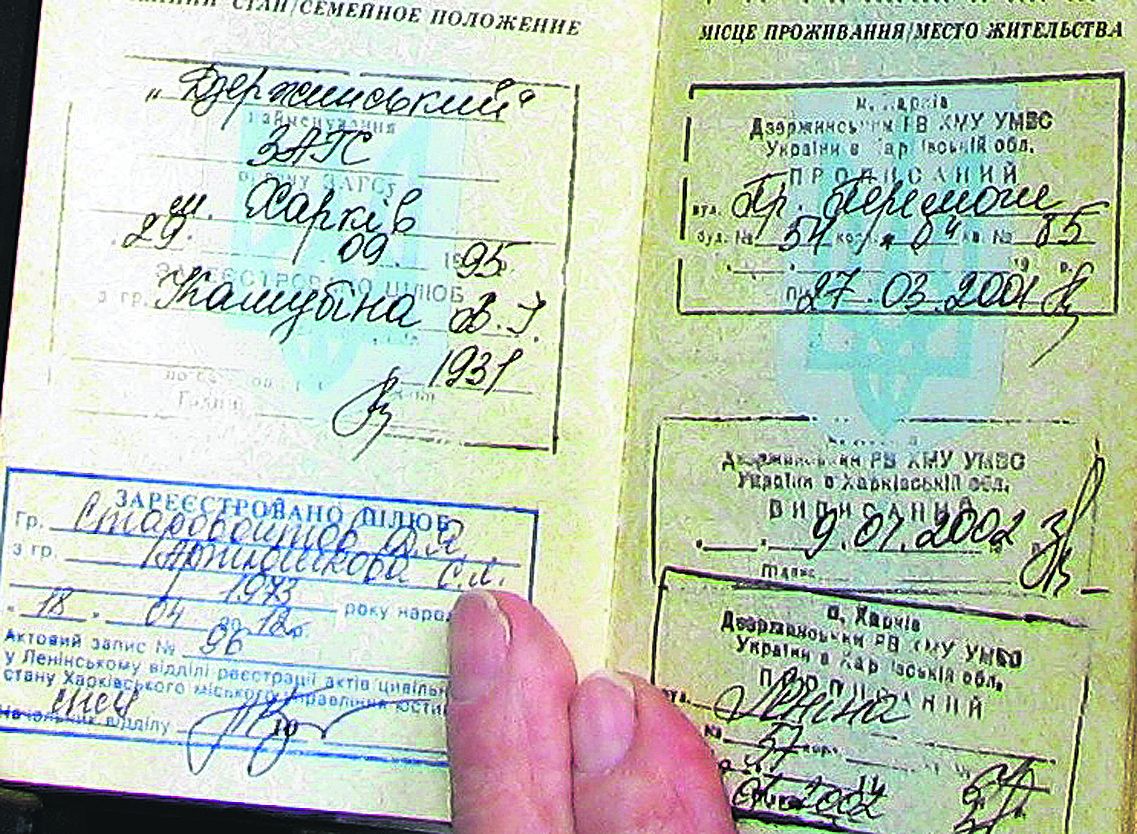 СТАН/СЕМЕЙНОЕ ПОЛОЖЕНИЕ
„Дзержинський“
найменування
ЗАГС
органу ЗАГСу
м. Харків
29. 09. 1995
ЗАРЕЄСТРОВАНО ШЛЮБ
з гр.
1931
ЗАРЕЄСТРОВАНО ШЛЮБ
Гр.
з гр.
1973 року народ
„18 „ 04 2012р.
Актовий запис № 96
у Ленінському відділі реєстрації актів цивільн
стану Харківського міського управління юстиц
Начальник відділу
МІСЦЕ ПРОЖИВАННЯ/МЕСТО ЖИТЕЛЬСТВА
м. Харків
Дзержинським РВ ХМУ УМВС
України в Харківській обл.
ПРОПИСАНИЙ
вул. Пр. Перемоги
буд. № 54 кв. № 85
27.03.2001
Дзержинським РВ ХМУ УМВС
України в Харківській обл.
ВИПИСАНИЙ
9.01.2002
Підпис
м. Харків
Дзержинським РВ ХМУ УМВС
України в Харківській обл.
ПРОПИСАНИЙ
вул. Леніна
2002